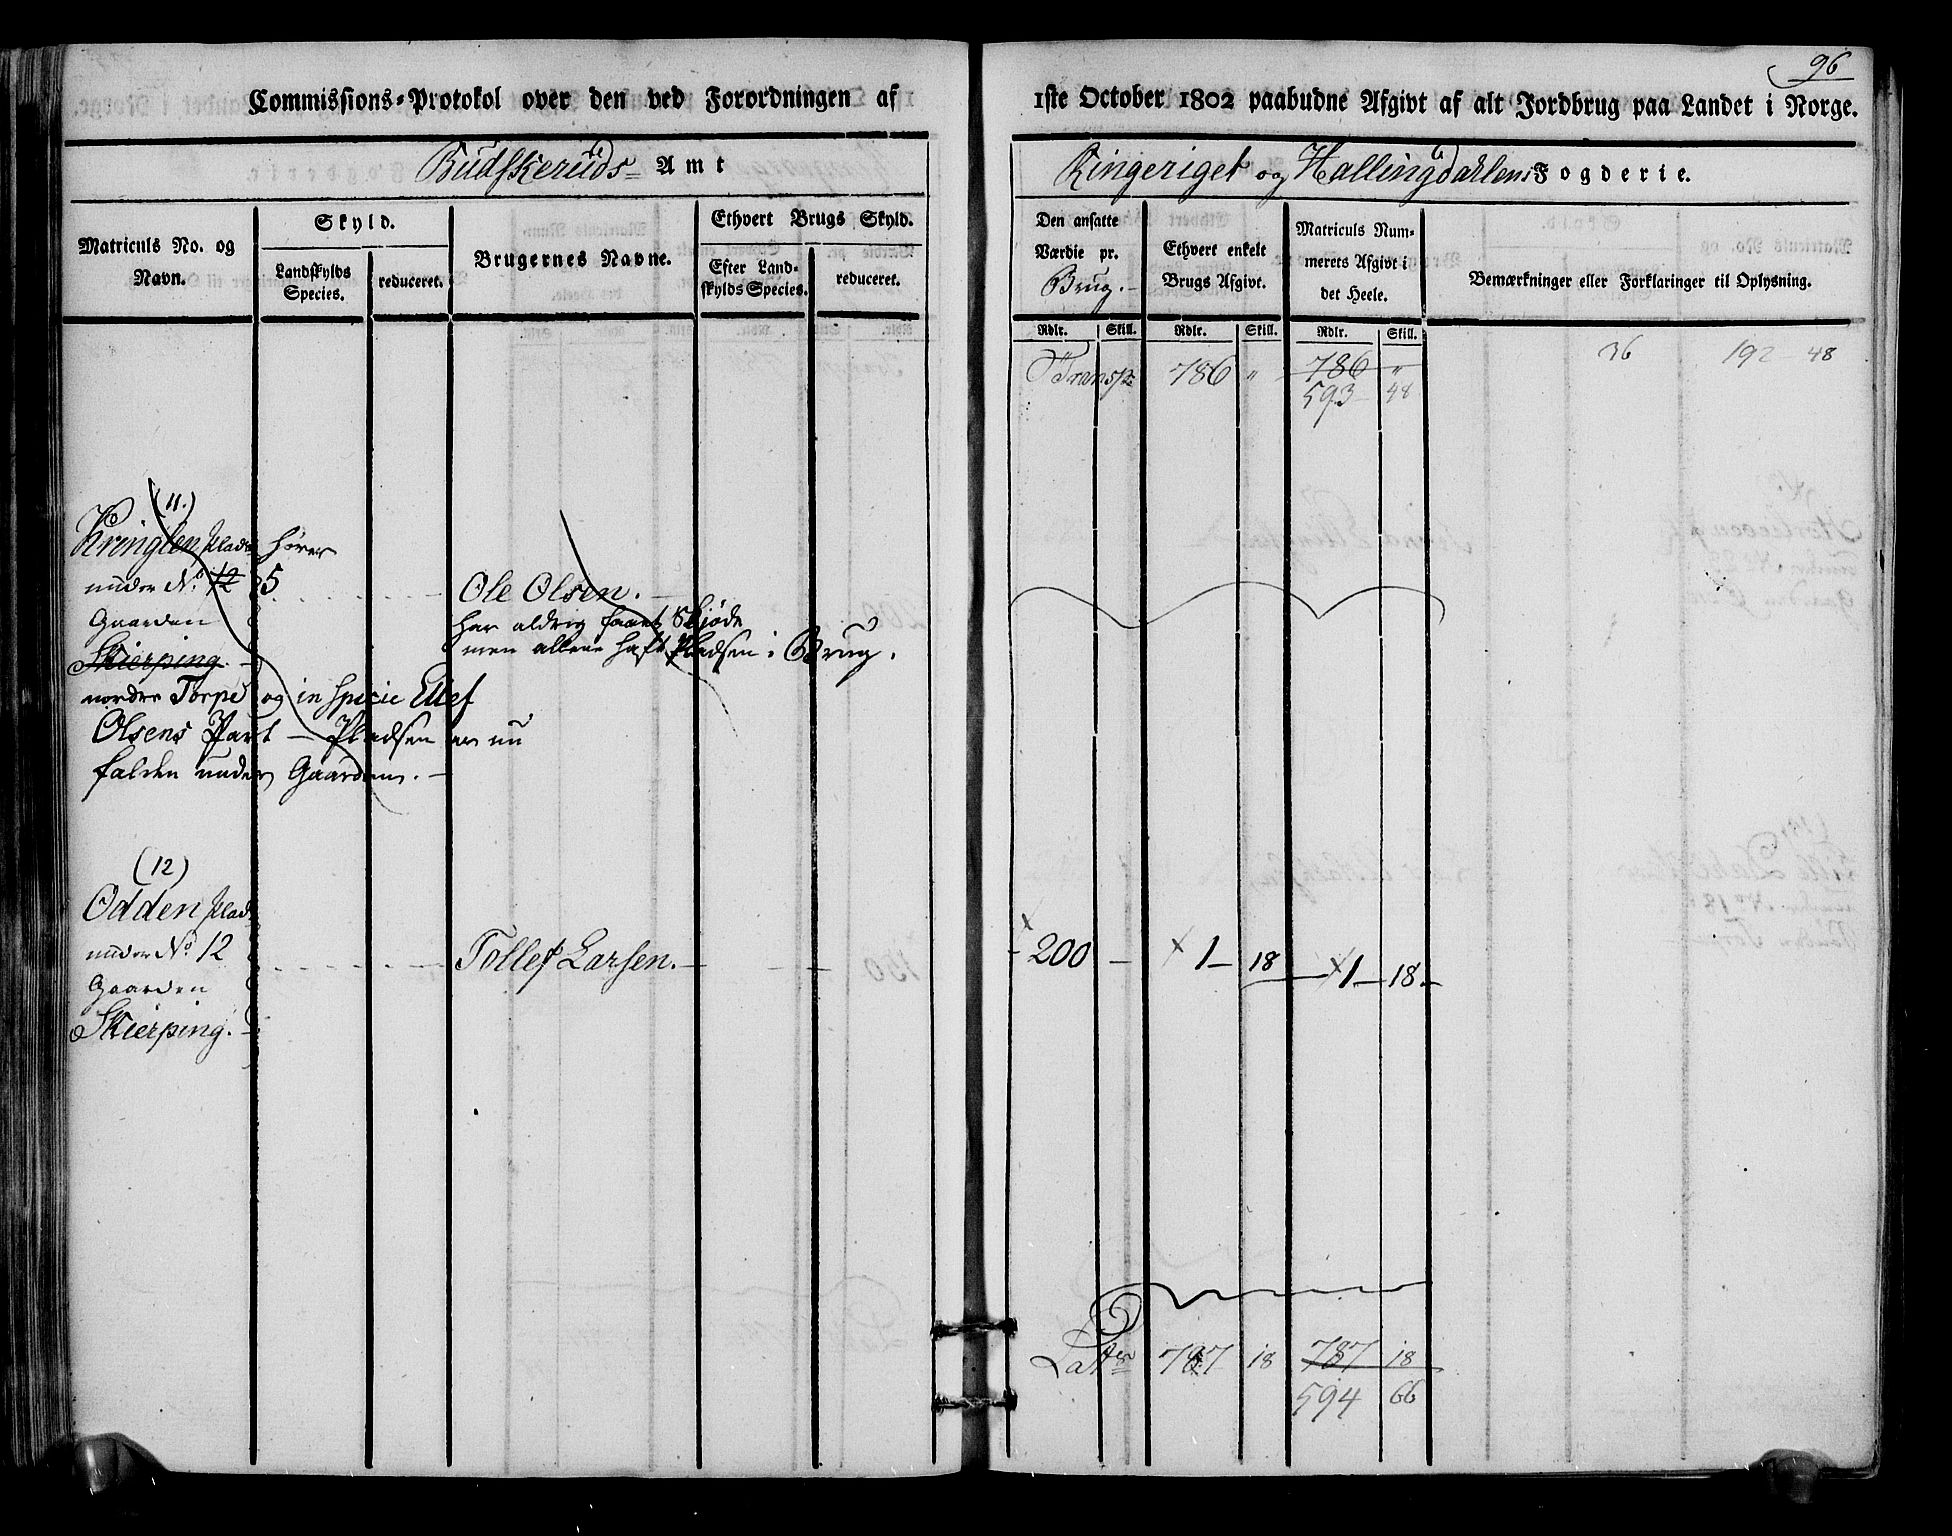 96
Commissions-Protokol over den ved Forordningen af
1ste October 1802 paabudne Afgivt af alt Jordbrug paa Landet i Norge.
Budskeruds Amt
Ringeriget og Hallingdahlens Fogderie.
Matriculs No. og Navn.
Skyld.
Landskylds Species.
reduceret.
Brugernes Navne.
Ethvert Brugs Skyld.
Efter Landskylds Species.
reduceret.
Den ansatte Værdie pr. Brug.
Ethvert enkelt Brugs Afgivt.
Matriculs Nummerets Afgivt i det Heele.
Bemærkninger eller Forklaringer til Oplysning.
Rdlr. Skill. Rdlr. Skill. Rdlr. Skill.
Transp. 786 " 786 " 36 192 48
593 48
(11.)
Kringlen Plads hører
under No. 12 5
Gaarden
Skierping.
nordre Torpe og in specie Ellef
Olsens Part - Pladsen er nu
falden under Gaarden. -
Ole Olsen.
har aldrig faaet Skjøde
men allene haft Pladsen i Brug.
(12)
Odden Plads
under No. 12
Gaarden
Skierping.
Tollef Larsen. - 200 - 1 - 18 - 1 - 18 -
Lats 787 18 787 18
594 66